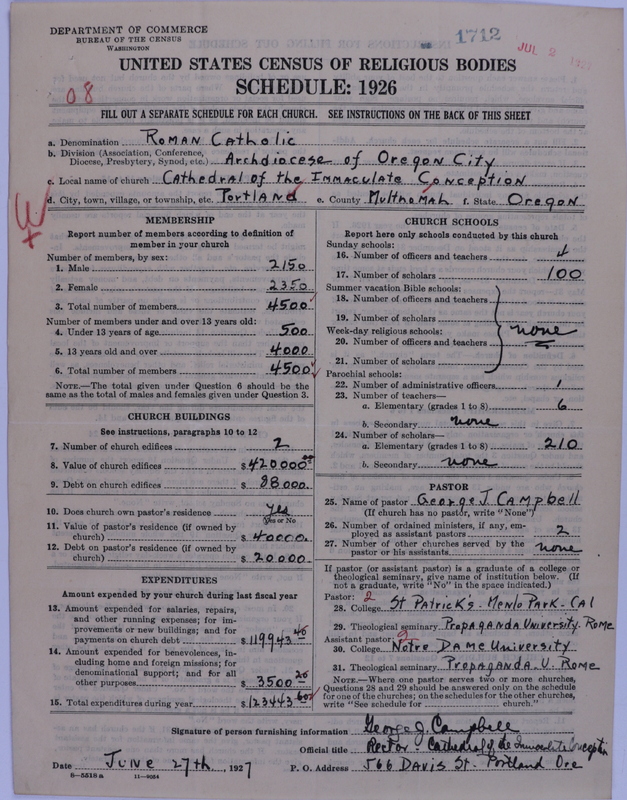 DEPARTMENT OF COMMERCE
BUREAU OF THE CENSUS
WASHINGTON
1712
JUL 2 1927
UNITED STATES CENSUS OF RELIGIOUS BODIES
SCHEDULE: 1926
08
FILL OUT A SEPARATE SCHEDULE FOR EACH CHURCH. SEE INSTRUCTIONS ON THE BACK OF THIS SHEET
a. Denomination Roman Catholic
b. Division (Association, Conference, Diocese, Presbytery, Synod, etc.) Archdiocese of Oregon City
c. Local name of church Cathedral of the Immaculate Conception
d. City, town, village, or township, etc. Portland e. County Multnomah f. State Oregon
MEMBERSHIP
Report number of members according to definition of member in your church
Number of members, by sex:
1. Male 2150
2. Female 2350
3. Total number of members 4500
Number of members under and over 13 years old:
4. Under 13 years of age 500
5. 13 years old and over 4000
6. Total number of members 4500
NOTE.—The total given under Question 6 should be the same as the total of males and females given under Question 3.
CHURCH BUILDINGS
See instructions, paragraphs 10 to 12
7. Number of church edifices 2
8. Value of church edifices $420000.00
9. Debt on church edifices $ 88000.
10. Does church own pastor's residence yes
Yes or No
11. Value of pastor's residence (if owned by church) $ 40000.
12. Debt on pastor's residence (if owned by church) $ 20000.
EXPENDITURES
Amount expended by your church during last fiscal year
13. Amount expended for salaries, repairs, and other running expenses; for improvements or new buildings; and for payments on church debt $119943 40
14. Amount expended for benevolences, including home and foreign missions; for denominational support; and for all other purposes $3500 20
15. Total expenditures during year $123443 60
CHURCH SCHOOLS
Report here only schools conducted by this church
Sunday schools:
16. Number of officers and teachers 4
17. Number of scholars 100
Summer vacation Bible schools:
18. Number of officers and teachers
19. Number of scholars
Week-day religious schools: none
20. Number of officers and teachers
21. Number of scholars
Parochial schools:
22. Number of administrative officers 1
23. Number of teachers—
a. Elementary (grades 1 to 8) 6
b. Secondary none
24. Number of scholars—
a. Elementary (grades 1 to 8) 210
b. Secondary none
PASTOR
25. Name of pastor George J. Campbell
(If church has no pastor, write "None")
26. Number of ordained ministers, if any, employed as assistant pastors 2
27. Number of other churches served by the pastor or his assistants none
If pastor (or assistant pastor) is a graduate of a college or theological seminary, give name of institution below. (If not a graduate, write "No" in the space indicated.)
Pastor: 2
28. College St Patrick's - Menlo Park - Cal
29. Theological seminary Propaganda University. Rome
Assistant pastor: 2
30. College Notre Dame University
31. Theological seminary Propaganda. U. Rome
NOTE.—Where one pastor serves two or more churches, Questions 28 and 29 should be answered only on the schedule for one of the churches; on the schedules for the other churches, write "See schedule for church."
Signature of person furnishing information George J. Campbell
Official title Rector Cathedral of the Immaculate Conception
Date June 27th, 1927 P. O. Address 566 Davis St. Portland Ore
8—5518 a 11—9054